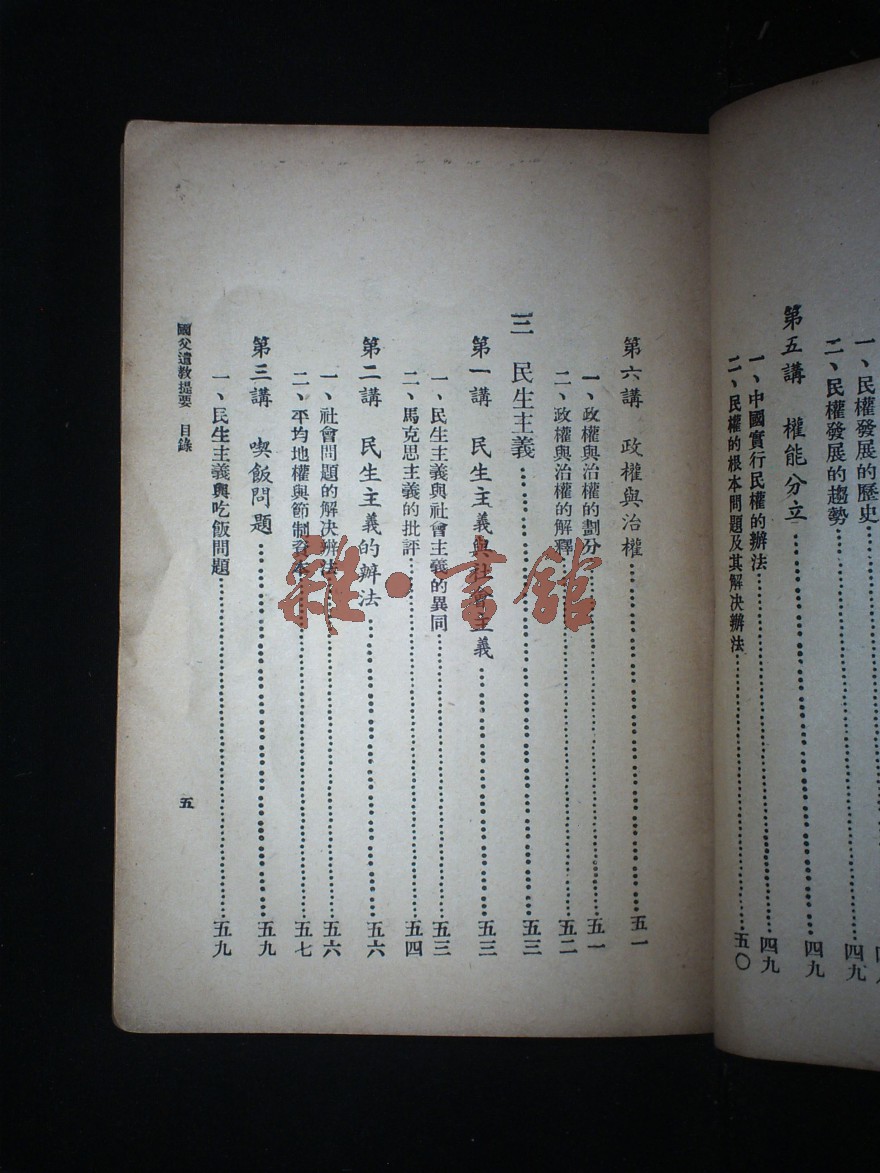 一、民權發展的歷史
二、民權發展的趨勢……四九
第五講 權能分立……四九
一、中國實行民權的辦法……四九
二、民權的根本問題及其解决辦法……五〇
第六講 政權與治權……五一
一、政權與治權的劃分……五一
二、政權與治權的解釋……五二
三 民生主義……五三
第一講 民生主義與社會主義……五三
一、民生主義與社會主義的異同……五三
二、馬克思主義的批評……五四
第二講 民生主義的辦法……五六
一、社會問題的解决辦法……五六
二、平均地權與節制資本……五七
第三講 喫飯問題……五九
一、民生主義與吃飯問題……五九
國父遺教提要 目錄
五
雜·書館